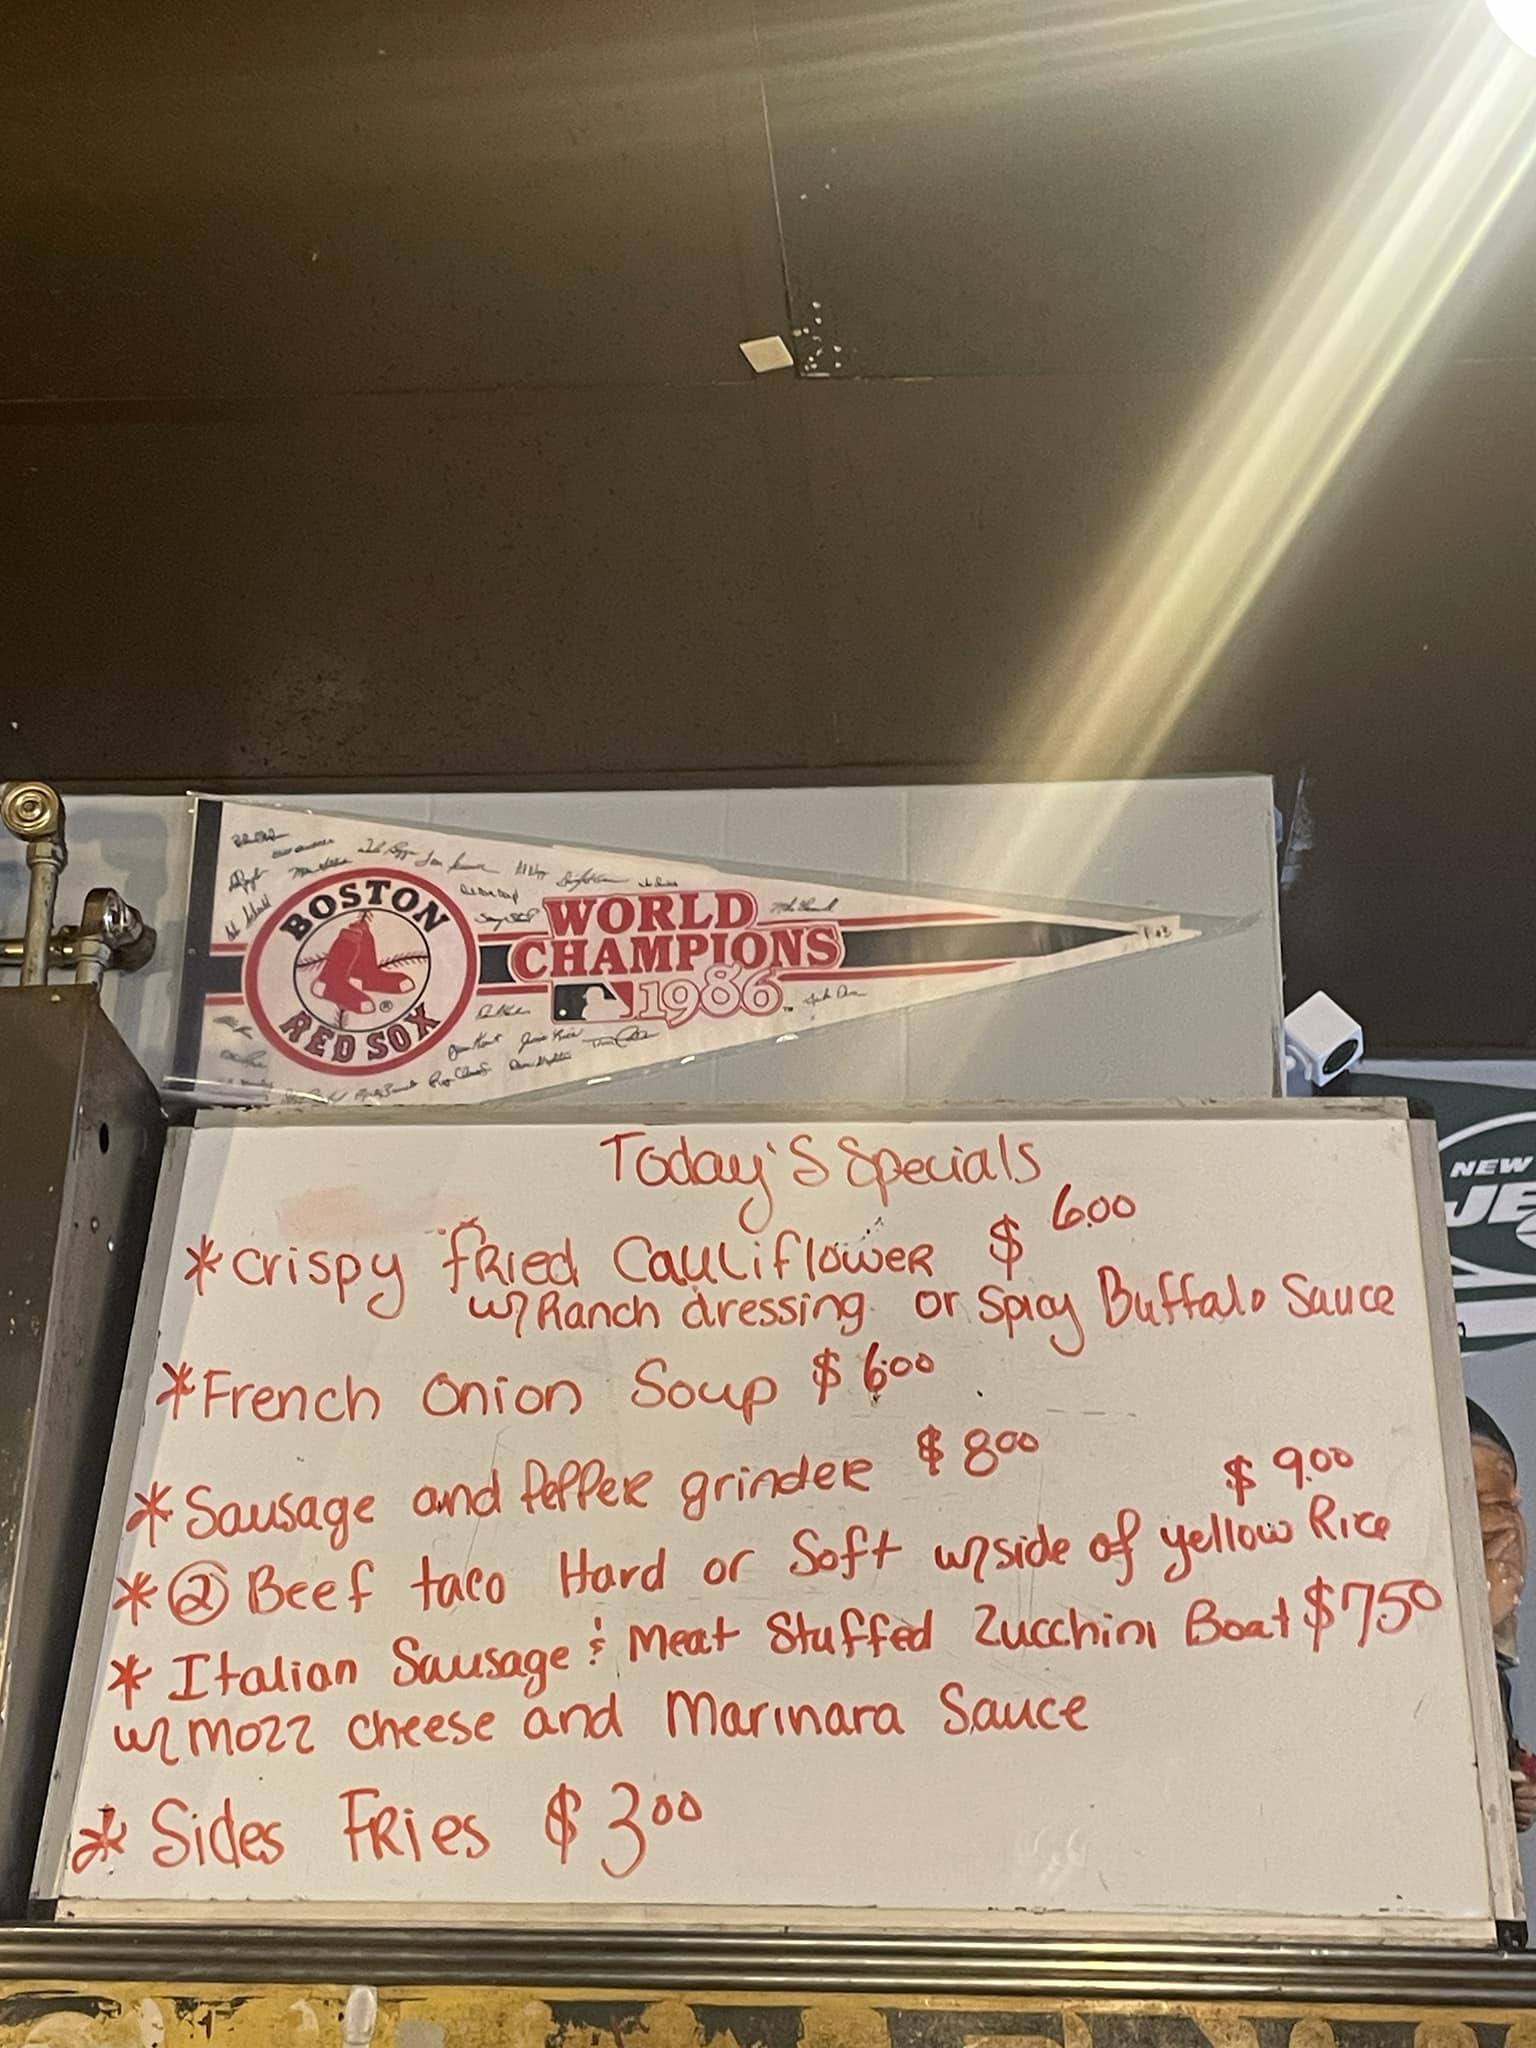 BOSTON
RED SOX
WORLD
CHAMPIONS
1986
NEW
Today's Specials
* Crispy fried Cauliflower $ 6.00
w/ Ranch dressing or Spicy Buffalo Sauce
* French Onion Soup $ 6.00
* Sausage and Pepper grinder $ 8.00
$ 9.00
* ② Beef taco Hard or Soft w/side of yellow Rice
* Italian Sausage & Meat Stuffed Zucchini Boat $7.50
w/ Mozz cheese and Marinara Sauce
* Sides Fries $ 3.00